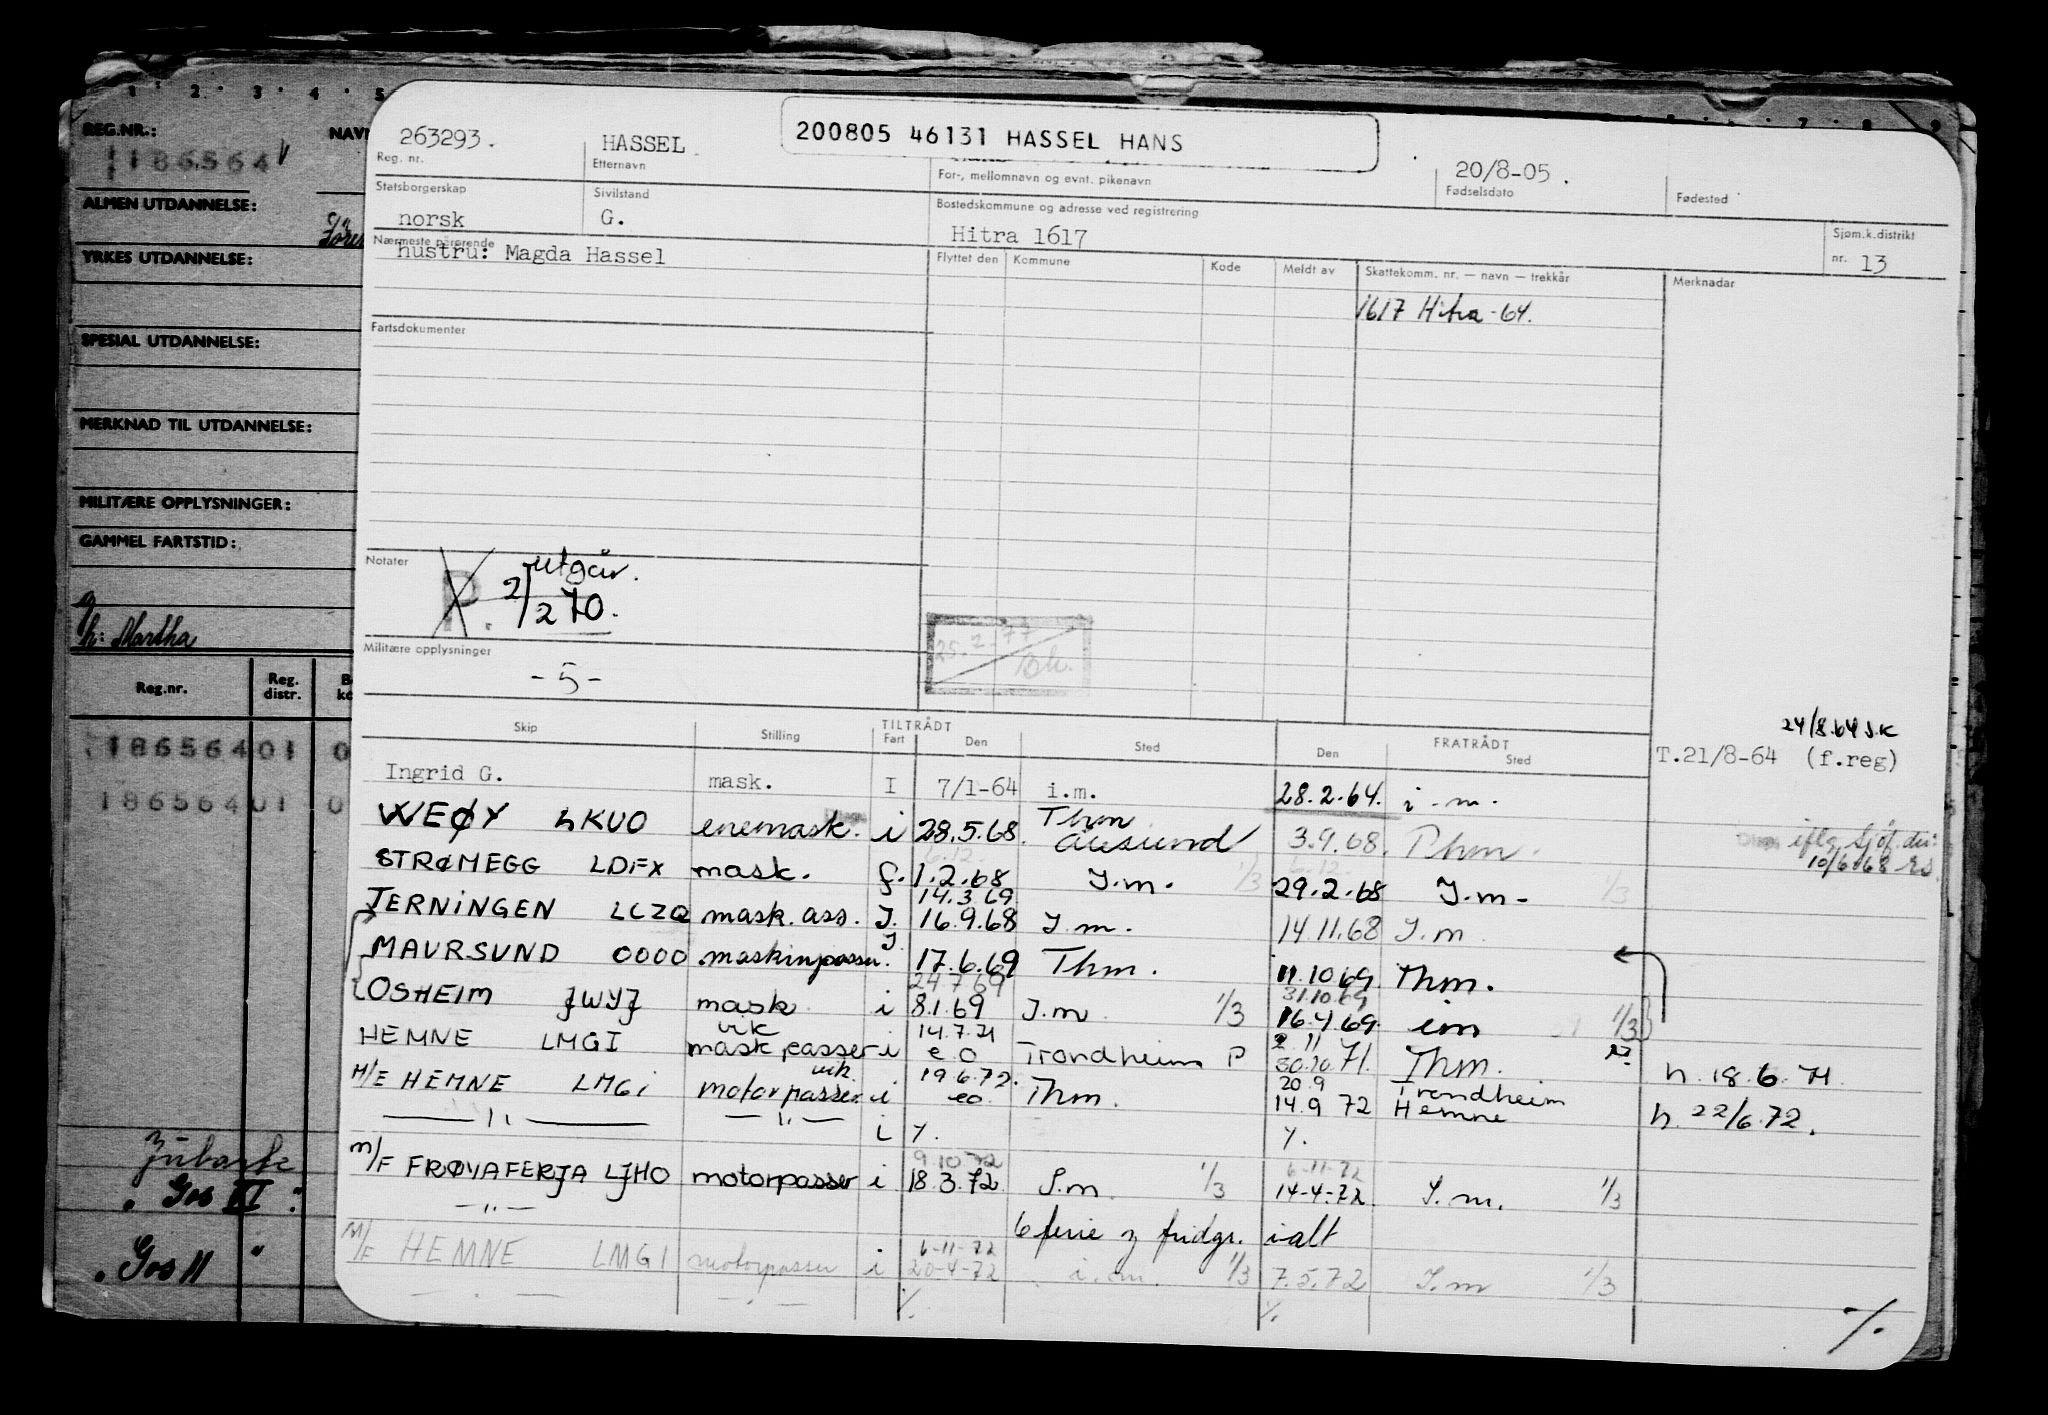 1 · 2 · 3 · 4 · 5 7 · 8 · 9
REG.NR.: NAVN
186564
ALMEN UTDANNELSE:
YRKES UTDANNELSE:
SPESIAL UTDANNELSE:
MERKNAD TIL UTDANNELSE:
MILITÆRE OPPLYSNINGER:
GAMMEL FARTSTID:
h: Martha
Reg.nr. Reg. distr.
186564 01 0
186564 01 0
" Gos II "
200805 46131 HASSEL HANS
263293. HASSEL 20/8-05.
Reg. nr. Etternavn For-, mellomnavn og evnt. pikenavn Fødselsdato Fødested
Statsborgerskap Sivilstand Bostedskommune og adresse ved registrering Sjøm.k.distrikt
norsk G. Hitra 1617 nr. 13
Nærmeste pårørende Flyttet den Kommune Kode Meldt av Skattekomm. nr. — navn — trekkår Merknadar
hustru: Magda Hassel
1617 Hitra -64.
Fartsdokumenter
Notater
P. utgår.
2/2 70.
25.2.77
Militære opplysninger
- 5 -
24/8.64 J.K
Skip Stilling TILTRÅDT Fart Den Sted Den FRATRÅDT Sted T.21/8-64 (f.reg)
Ingrid G. mask. I 7/1-64 i.m. 28.2.64. i.m.
VEØY LKUO enemask. i 28.5.68. Thm Ålesund 3.9.68. Thm. iflg Sjøf.dir: 10/6.68
STRØMEGG LDFX mask. f. 1.2.68 I.m. 1/3 29.2.68 I.m. 1/3
14.3.69
TERNINGEN LCZQ mask.ass. I. 16.9.68 I.m. 14.11.68 I.m
MAURSUND OOOO maskinpasser. I 17.6.69 Thm. 11.10.69 Thm.
24.7.69 31.10.69
OSHEIM JWYJ mask. i 8.1.69 I.m 1/3 16.4.69. im 1/3
HEMNE LMGI vik mask passer i 14.7.71 e.o Trondheim P 2.11 30.10.71. Thm. h. 18.6.71
M/F HEMNE LMGI vik. motorpasser i 19.6.72. eo Thm. 20.9 14.9 72 Trondheim Hemne h. 22/6.72.
— " — — " — i y. y.
9.10.72 6-11-72
M/F FRØYAFERJA LJHO motorpasser i 18.3.72. I.m. 1/3 14-4-72. I.m. 1/3
— " —
6 ferie og fridgr. i alt
6-11-72
M/F HEMNE LMGI motorpasser i 20-4-72 i.m. 1/3 7.5.72 I.m 1/3
%. %.
%.